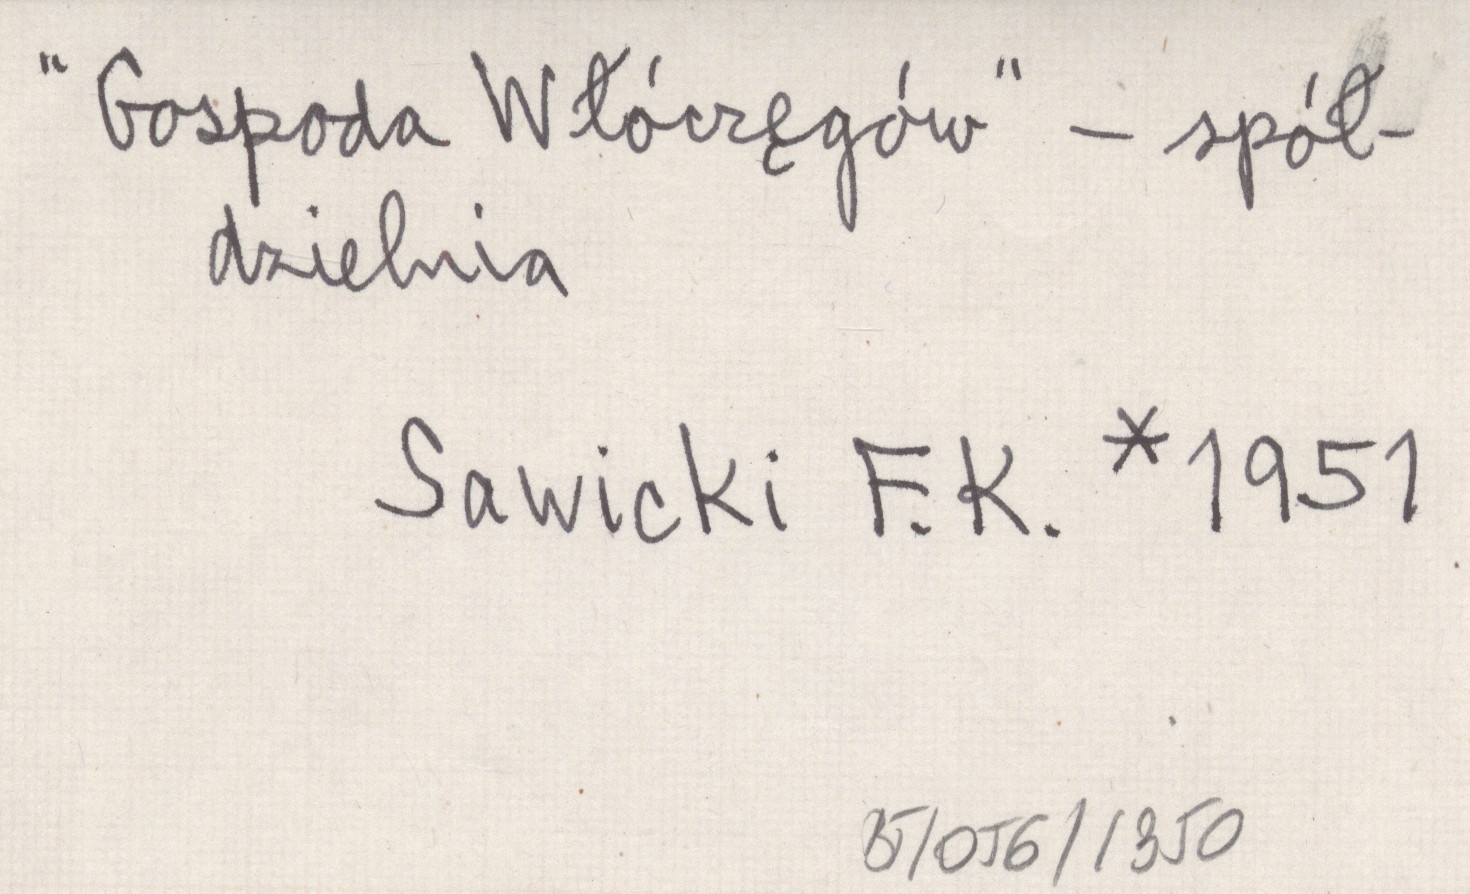 "Gospoda Włóczęgów" – spół-
dzielnia
Sawicki F.K. *1951
/056/1350